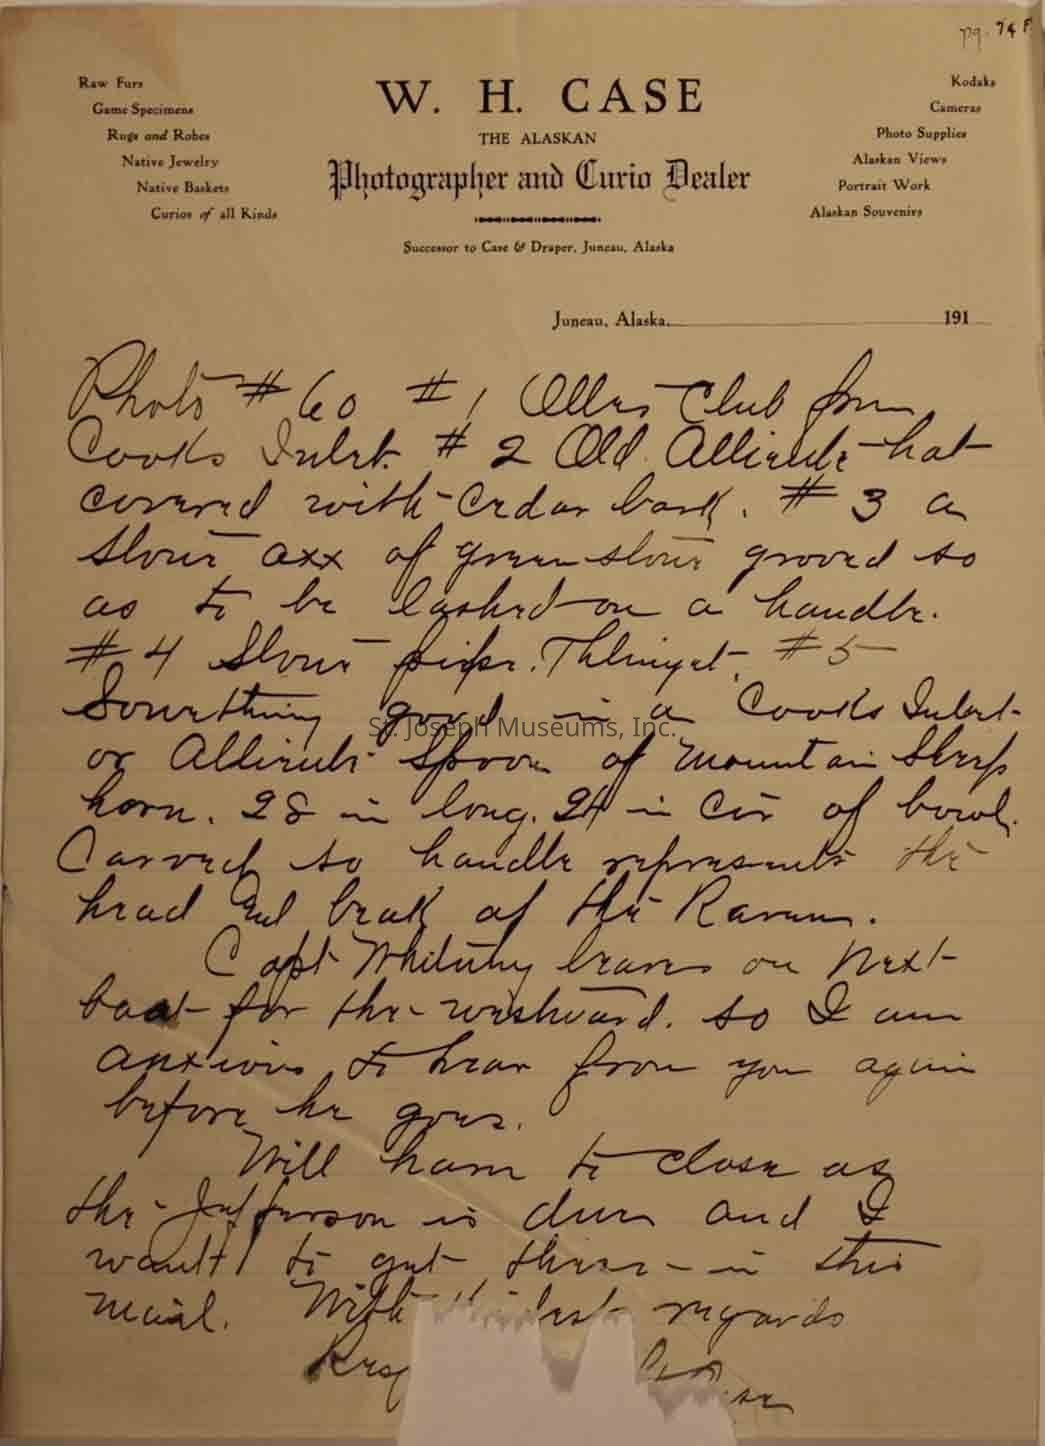 pg. 74 F
Raw Furs
Game Specimens
Rugs and Robes
Native Jewelry
Native Baskets
Curios of all Kinds
W. H. CASE
THE ALASKAN
Photographer and Curio Dealer
Successor to Case & Draper, Juneau, Alaska
Kodaks
Cameras
Photo Supplies
Alaskan Views
Portrait Work
Alaskan Souvenirs
Juneau, Alaska, 191
Photo # 60 # 1 Club from
Cooks Inlet. # 2 Old hat
covered with Cedar bark. # 3 a
Stone axx of green stone grooved so
as to be lashed on a handle.
# 4 Stone pipe. Thlinget # 5
Something good in a Cooks Inlet
or Spoon of Mountain Sheep
horn. 28 in long. 24 in Cir of bowl.
Carved so handle represents the
head and beak of the Raven.
Capt Whitney leaves on next
boat for the westward. so I am
anxious to hear from you again
before he goes.
Will have to close as
the Jefferson is due and I
want to get these in this
mail. With regards
St. Joseph Museums, Inc.